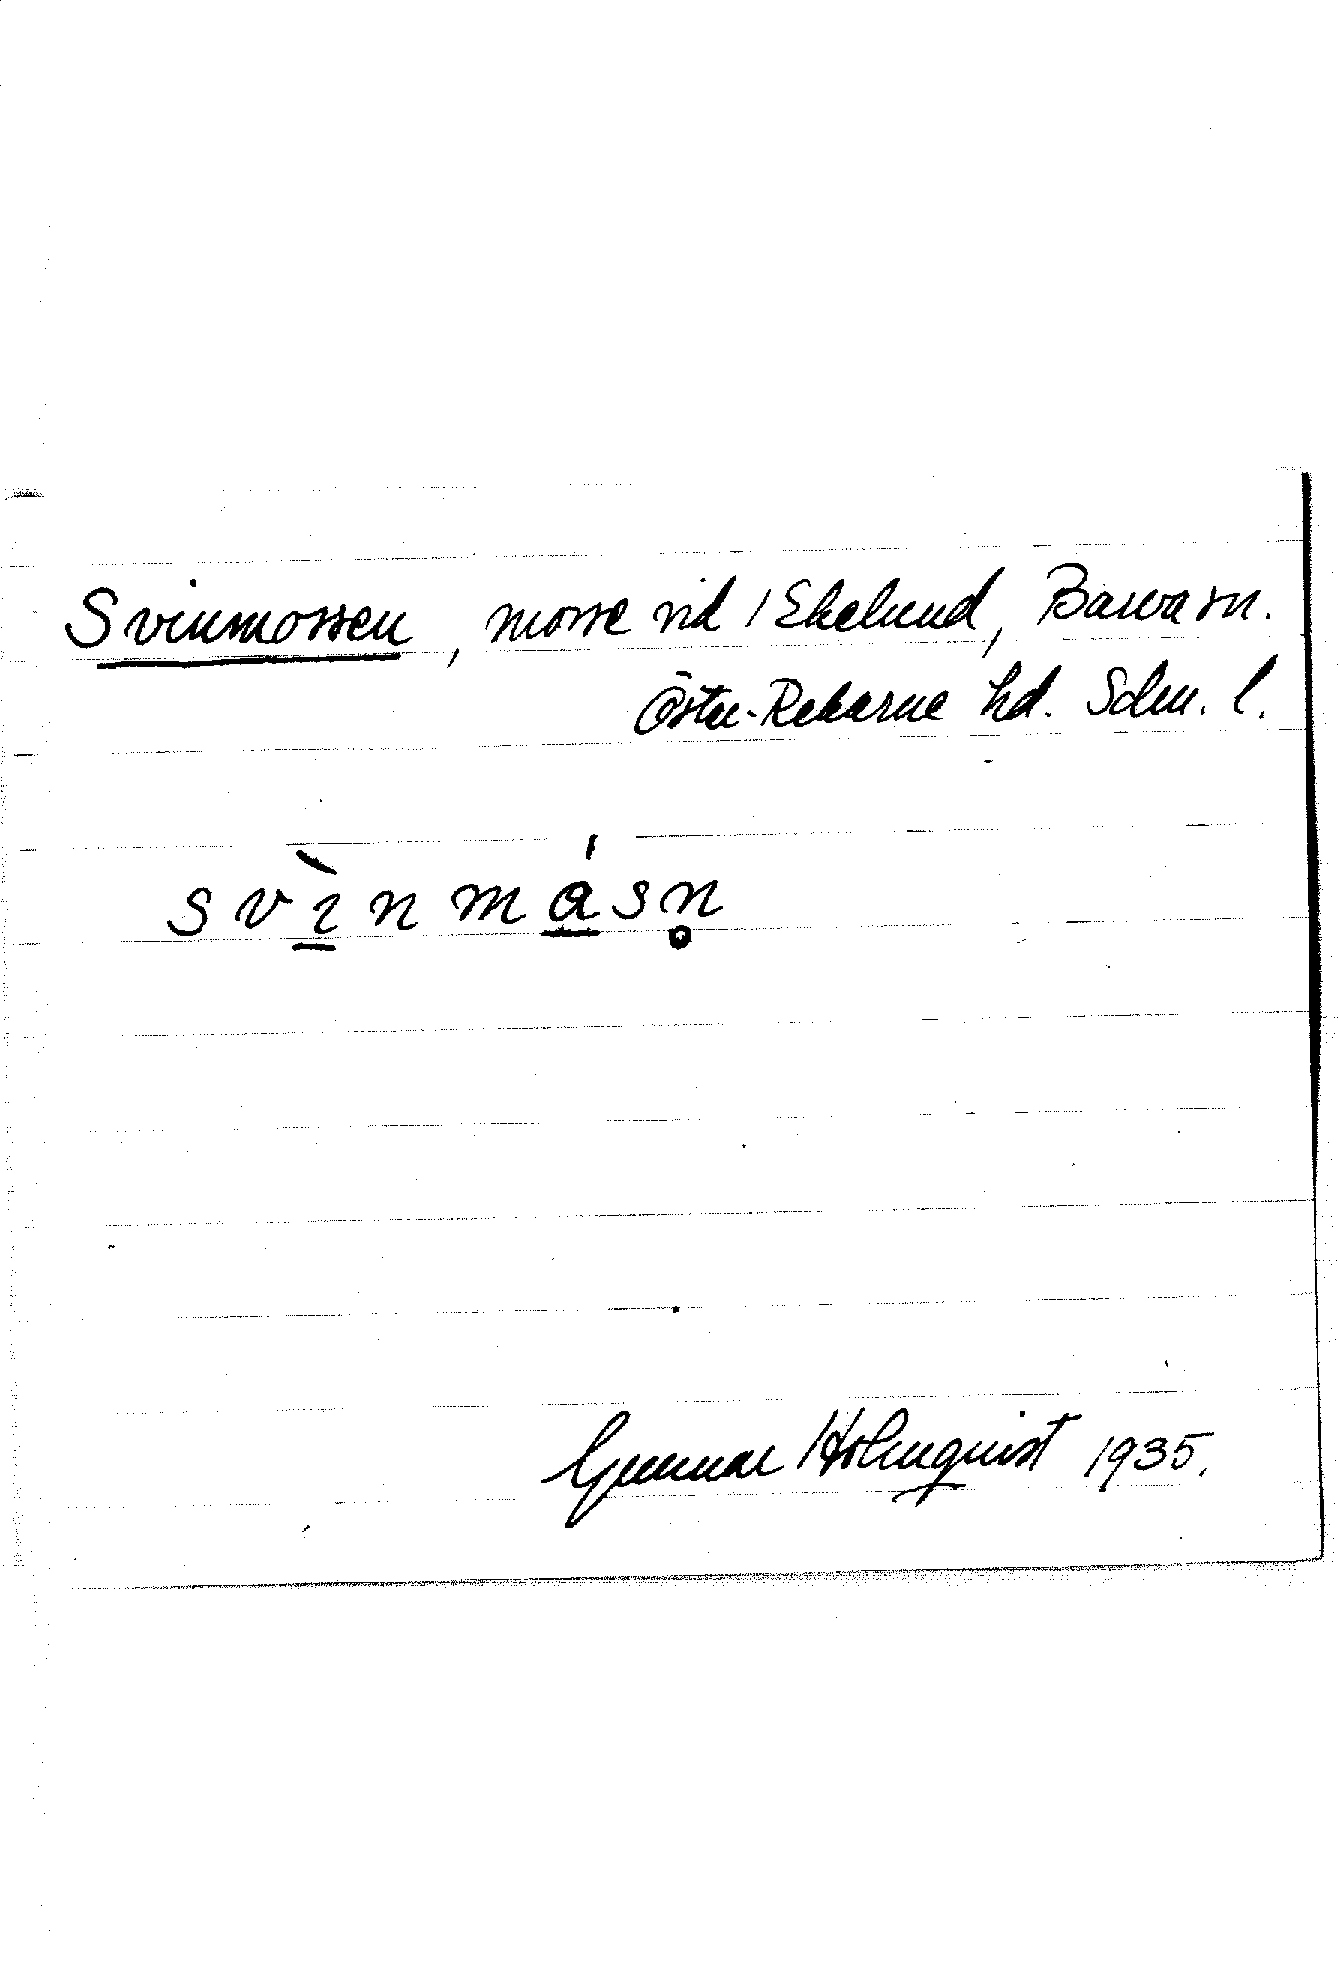 Svinmossen, mosse vid Ekelund, Barva sn.
Öster-Rekarne hd. Sdm. l.
svìnmásn̥
Gunnar Holmquist 1935.